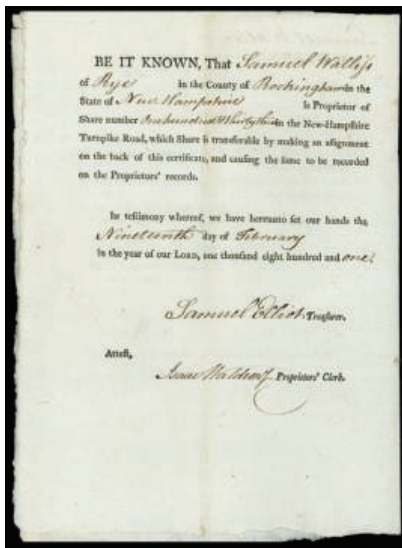 BE IT KNOWN, That Samuel Wallis
of Rye in the County of Rockingham in the
State of New Hampshire is Proprietor of
Share number One hundred & thirty in the New-Hampshire
Turnpike Road, which Share is transferable by making an assignment
on the back of this certificate, and causing the same to be recorded
on the Proprietors' records.
In testimony whereof, we have hereunto set our hands the
Nineteenth day of February
in the year of our LORD, one thousand eight hundred and one.
Samuel Elliot Treasurer.
Attest,
Isaac Waldron Proprietors' Clerk.